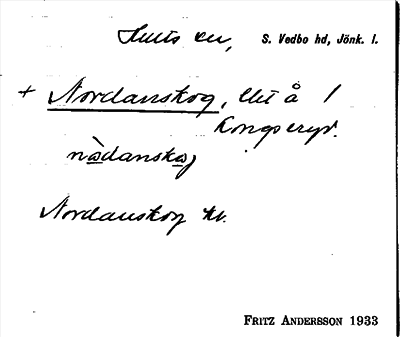 S. Vedbo hd, Jönk. l.
+ Nordanskog, å
Kongseryd.
nådanskog
Nordanskog kv.
FRITZ ANDERSSON 1933